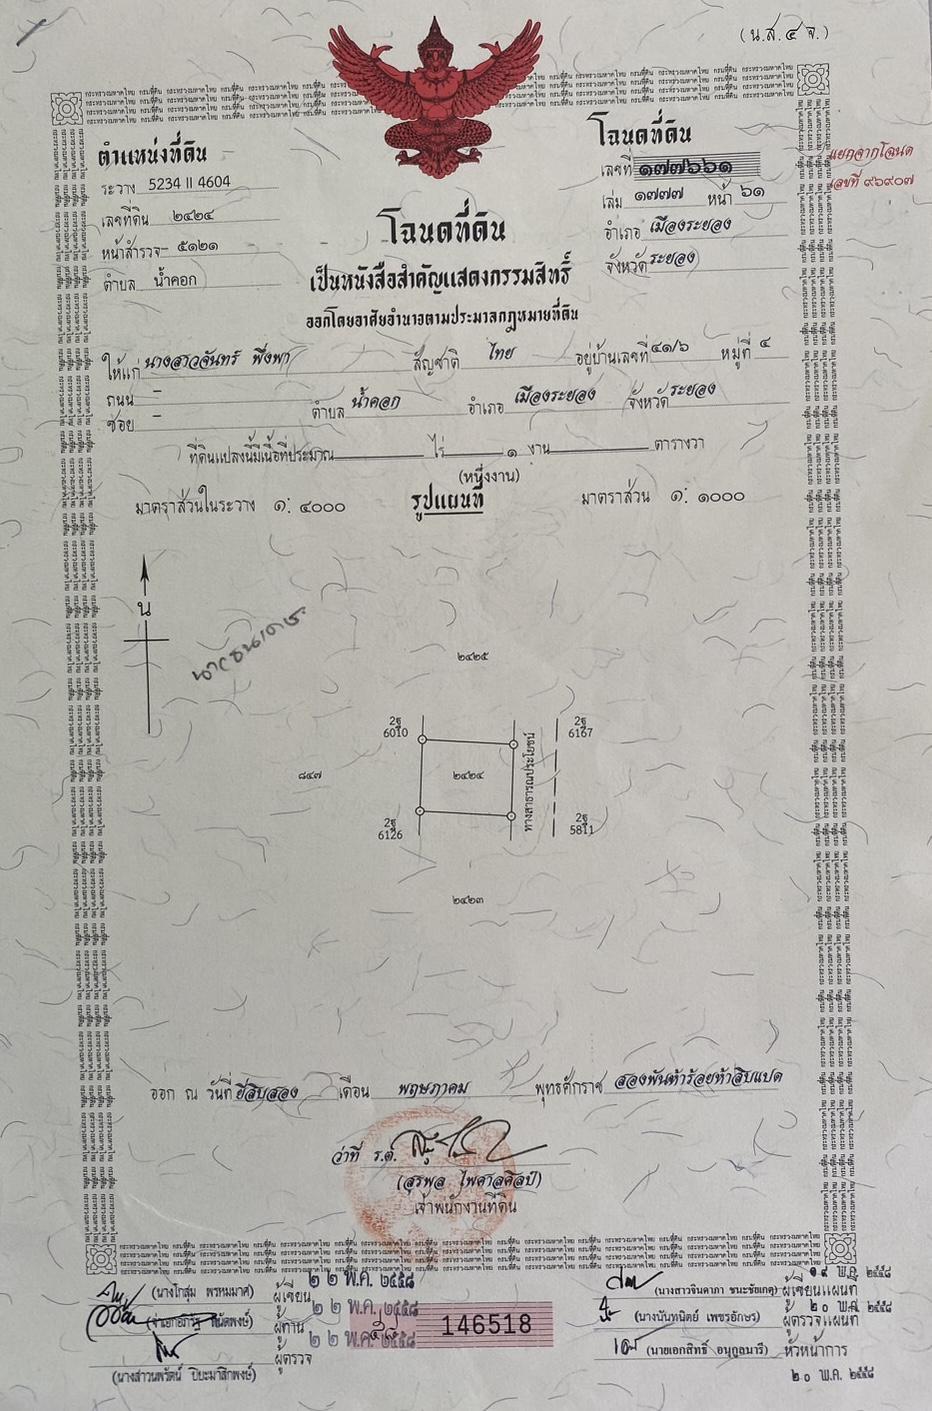 (น.ส.๔ จ.)
ตำแหน่งที่ดิน
ระวาง 5234 II 4604
เลขที่ดิน ๒๔๒๔
หน้าสำรวจ ๕๑๒๑
ตำบล น้ำคอก
โฉนดที่ดิน
เลขที่ ๑๗๗๖๖๑
เล่ม ๑๗๗๗ หน้า ๖๑
อำเภอ เมืองระยอง
จังหวัด ระยอง
แยกจากโฉนด
เลขที่ ๙๖๙๐๗
โฉนดที่ดิน
เป็นหนังสือสำคัญแสดงกรรมสิทธิ์
ออกโดยอาศัยอำนาจตามประมวลกฎหมายที่ดิน
ให้แก่ นางสาวจันทร์ พึ่งพา สัญชาติ ไทย อยู่บ้านเลขที่ ๔๑/๖ หมู่ที่ ๔
ถนน – ตำบล น้ำคอก อำเภอ เมืองระยอง จังหวัด ระยอง
ซอย –
ที่ดินแปลงนี้มีเนื้อที่ประมาณ ไร่ ๑ งาน ตารางวา
(หนึ่งงาน)
มาตราส่วนในระวาง ๑: ๔๐๐๐ รูปแผนที่ มาตราส่วน ๑: ๑๐๐๐
น
๒๔๒๕
2ฐ 2ฐ
6010 6167
๘๔๗ ๒๔๒๔ ทางสาธารณประโยชน์
2ฐ 2ฐ
6126 5811
๒๔๒๓
ออก ณ วันที่ ยี่สิบสอง เดือน พฤษภาคม พุทธศักราช สองพันห้าร้อยห้าสิบแปด
ว่าที่ ร.ต.
(สุรพล ไพศาลศิลป์)
เจ้าพนักงานที่ดิน
(นางโกสุ่ม พรหมมาศ) ผู้เขียน ๒๒ พ.ค. ๒๕๕๘
ผู้ทาน ๒๒ พ.ค. ๒๕๕๘
ผู้ตรวจ ๒๒ พ.ค. ๒๕๕๘
(นางสาวนพรัตน์ ปิยะมาสิกพงษ์)
146518
(นางสาวจินดาภา ชนะชัยเกตุ) ผู้เขียนแผนที่ ๑๙ พ.ค. ๒๕๕๘
(นางนันทนิตย์ เพชรอักษร) ผู้ตรวจแผนที่ ๒๐ พ.ค. ๒๕๕๘
(นายเอกสิทธิ์ อนุกูลนารี) หัวหน้าการ
๒๐ พ.ค. ๒๕๕๘